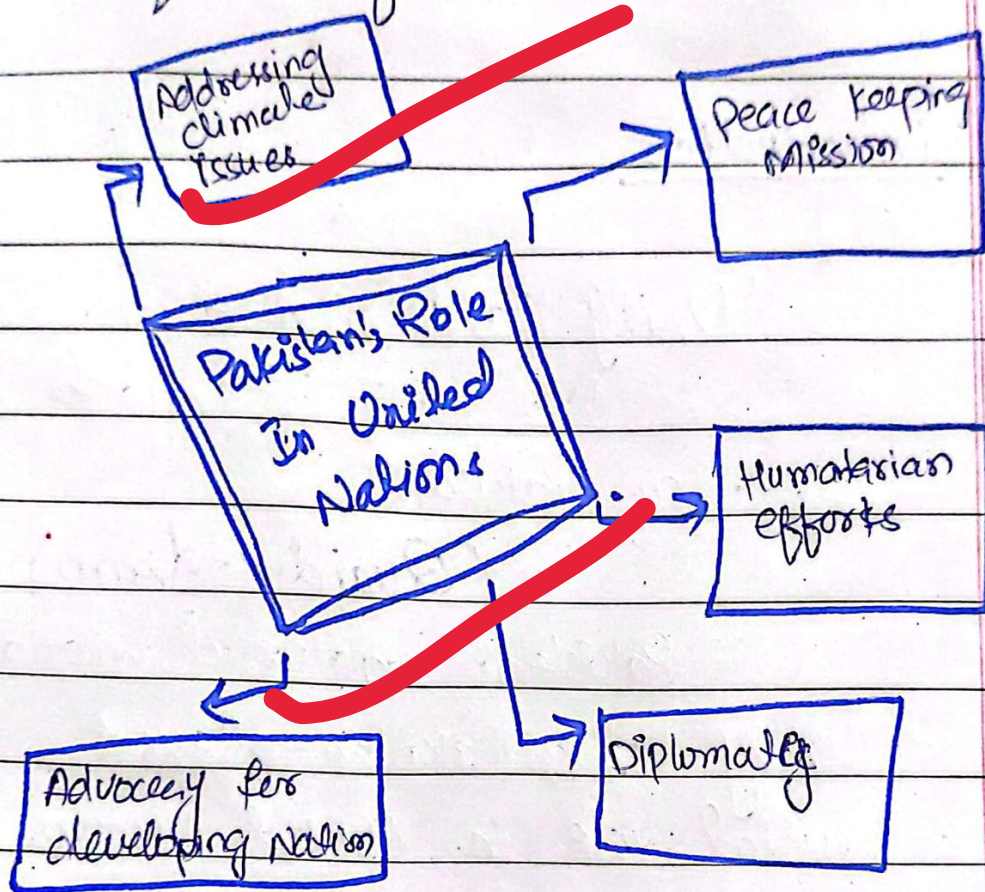 Addressing
climate
issues
Peace Keeping
Mission
Pakistan's Role
In United
Nations
Humatarian
efforts
Diplomatey
Advocecy for
developing Nation